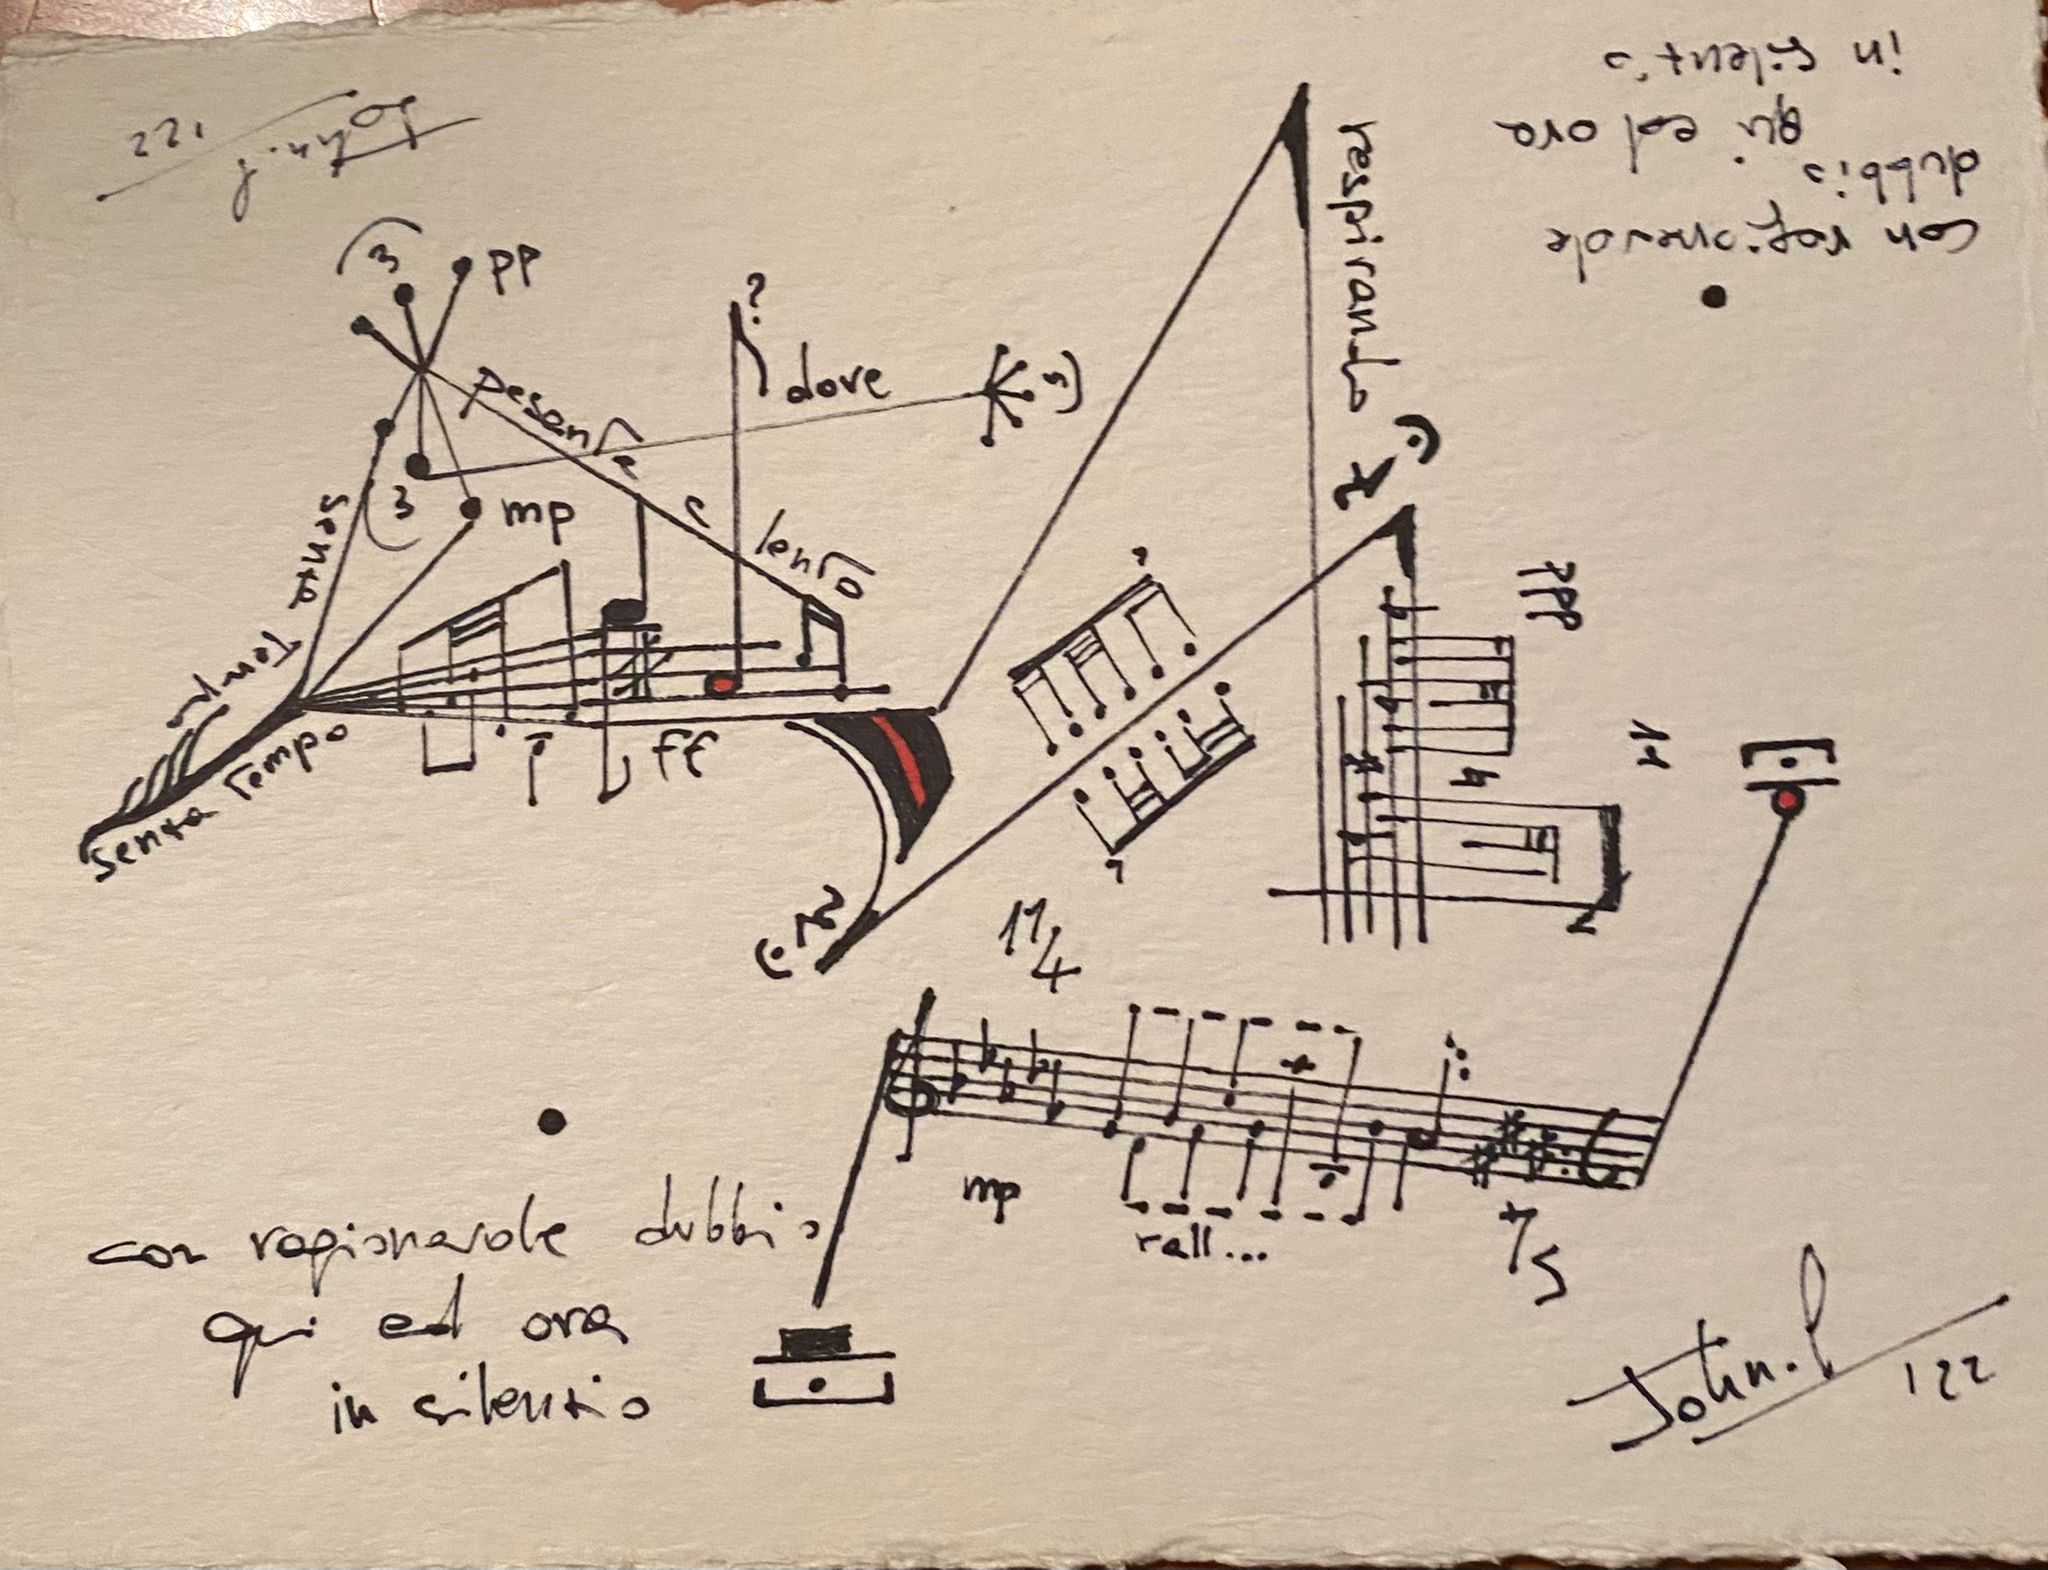 122
John.l
in silentio
qui ed ora
dubbio
con ragionevole
respirando
(3
pp
?
dove
pesante
e
lento
5)
3
mp
senza
Tempo
senza Tempo
ff
ppp
4
7
7
11/4
mp
rall...
7/5
con ragionevole dubbio
qui ed ora
in silentio
John.l
122